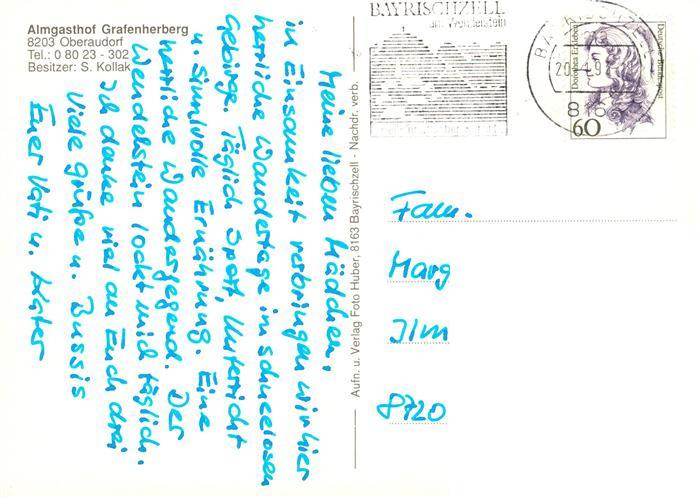 Almgasthof Grafenherberg
8203 Oberaudorf
Tel.: 0 80 23 - 302
Besitzer: S. Kollak
Meine lieben Mädchen,
in Einsamkeit verbringen wir hier
herrliche Wandertage im schneelosen
Gebirge. Täglich Sport, Unterricht
u. Sinnvolle Ernährung. Eine
herrliche Wandergegend. Der
Wendelstein lockt mich täglich.
Ich danke viel an Euch drei
Viele Grüße u. Bussis
Euer Vati u.
Aufn. u. Verlag Foto Huber, 8163 Bayrischzell - Nachdr. verb.
BAYRISCHZELL
am Wendelstein
Dorothea Erxleben
Deutsche Bundespost
60
Fam.
Marg
Ilm
8720